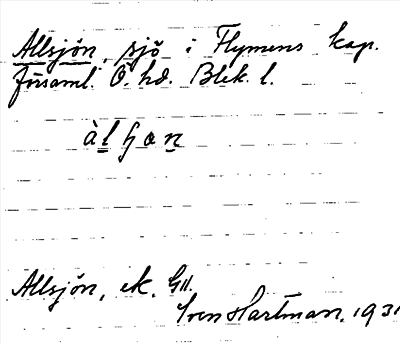 Allsjön, sjö i Flymens kap.
församl. Ö. hd. Blek. l.
Allsjön, ek. Gll.
Sven Hartman, 1931